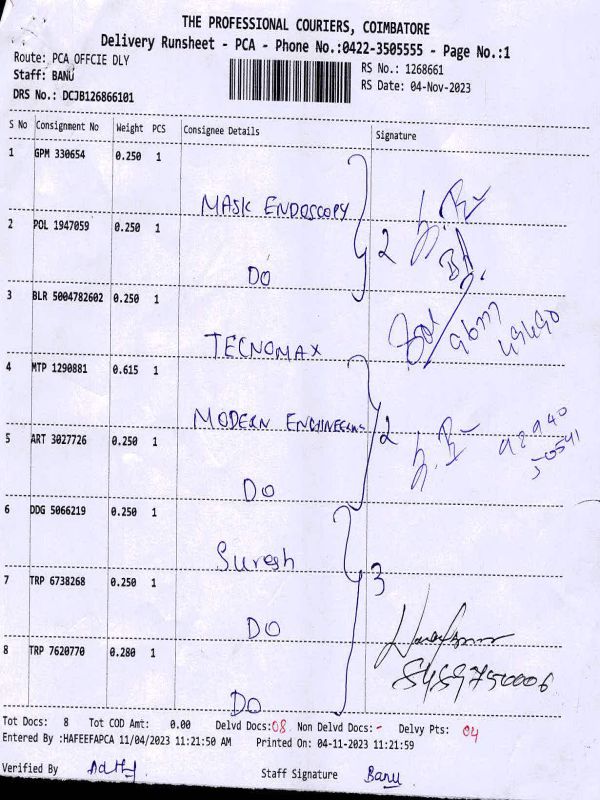 THE PROFESSIONAL COURIERS, COIMBATORE
Delivery Runsheet - PCA - Phone No.:0422-3505555 - Page No.:1
Route: PCA OFFCIE DLY
RS No.: 1268661
Staff: BANU
RS Date: 04-Nov-2023
DRS No.: DCJB126866101
S No Consignment No Weight PCS Consignee Details Signature
1 GPM 330654 0.250 1
MASK ENDOSCOPY
2 POL 1947059 0.250 1
2
DO
3 BLR 5004782602 0.250 1
TECNOMAX
4 MTP 1290881 0.615 1
MODERN ENGINEERING
2
5 ART 3027726 0.250 1
DO
6 DDG 5066219 0.250 1
Suresh
7 TRP 6738268 0.250 1
3
DO
8 TRP 7620770 0.280 1
8489750006
DO
Tot Docs: 8 Tot COD Amt: 0.00 Delvd Docs: 08 Non Delvd Docs: - Delvy Pts: 04
Entered By :HAFEEFAPCA 11/04/2023 11:21:50 AM Printed On: 04-11-2023 11:21:59
Verified By
Staff Signature Banu